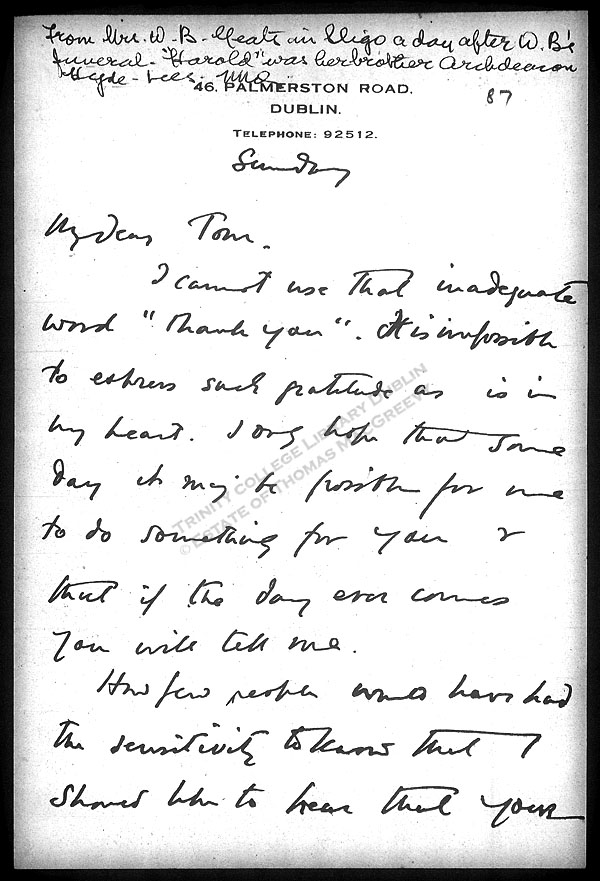 From Mrs. W. B. Yeats in Sligo a day after W. B's
funeral. "Harold" was her brother Archdeacon
Hyde-Lees.
87
46, PALMERSTON ROAD,
DUBLIN.
TELEPHONE: 92512.
Sunday
My dear Tom.
I cannot use that inadequate
word "thank you". It is impossible
to express such gratitude as is in
my heart. I only hope that some
day it may be possible for me
to do something for you &
that if the day ever comes
you will tell me.
How few people would have had
the sensitivity to know that I
should like to hear that your
TRINITY COLLEGE LIBRARY DUBLIN
© ESTATE OF THOMAS MACGREEVY